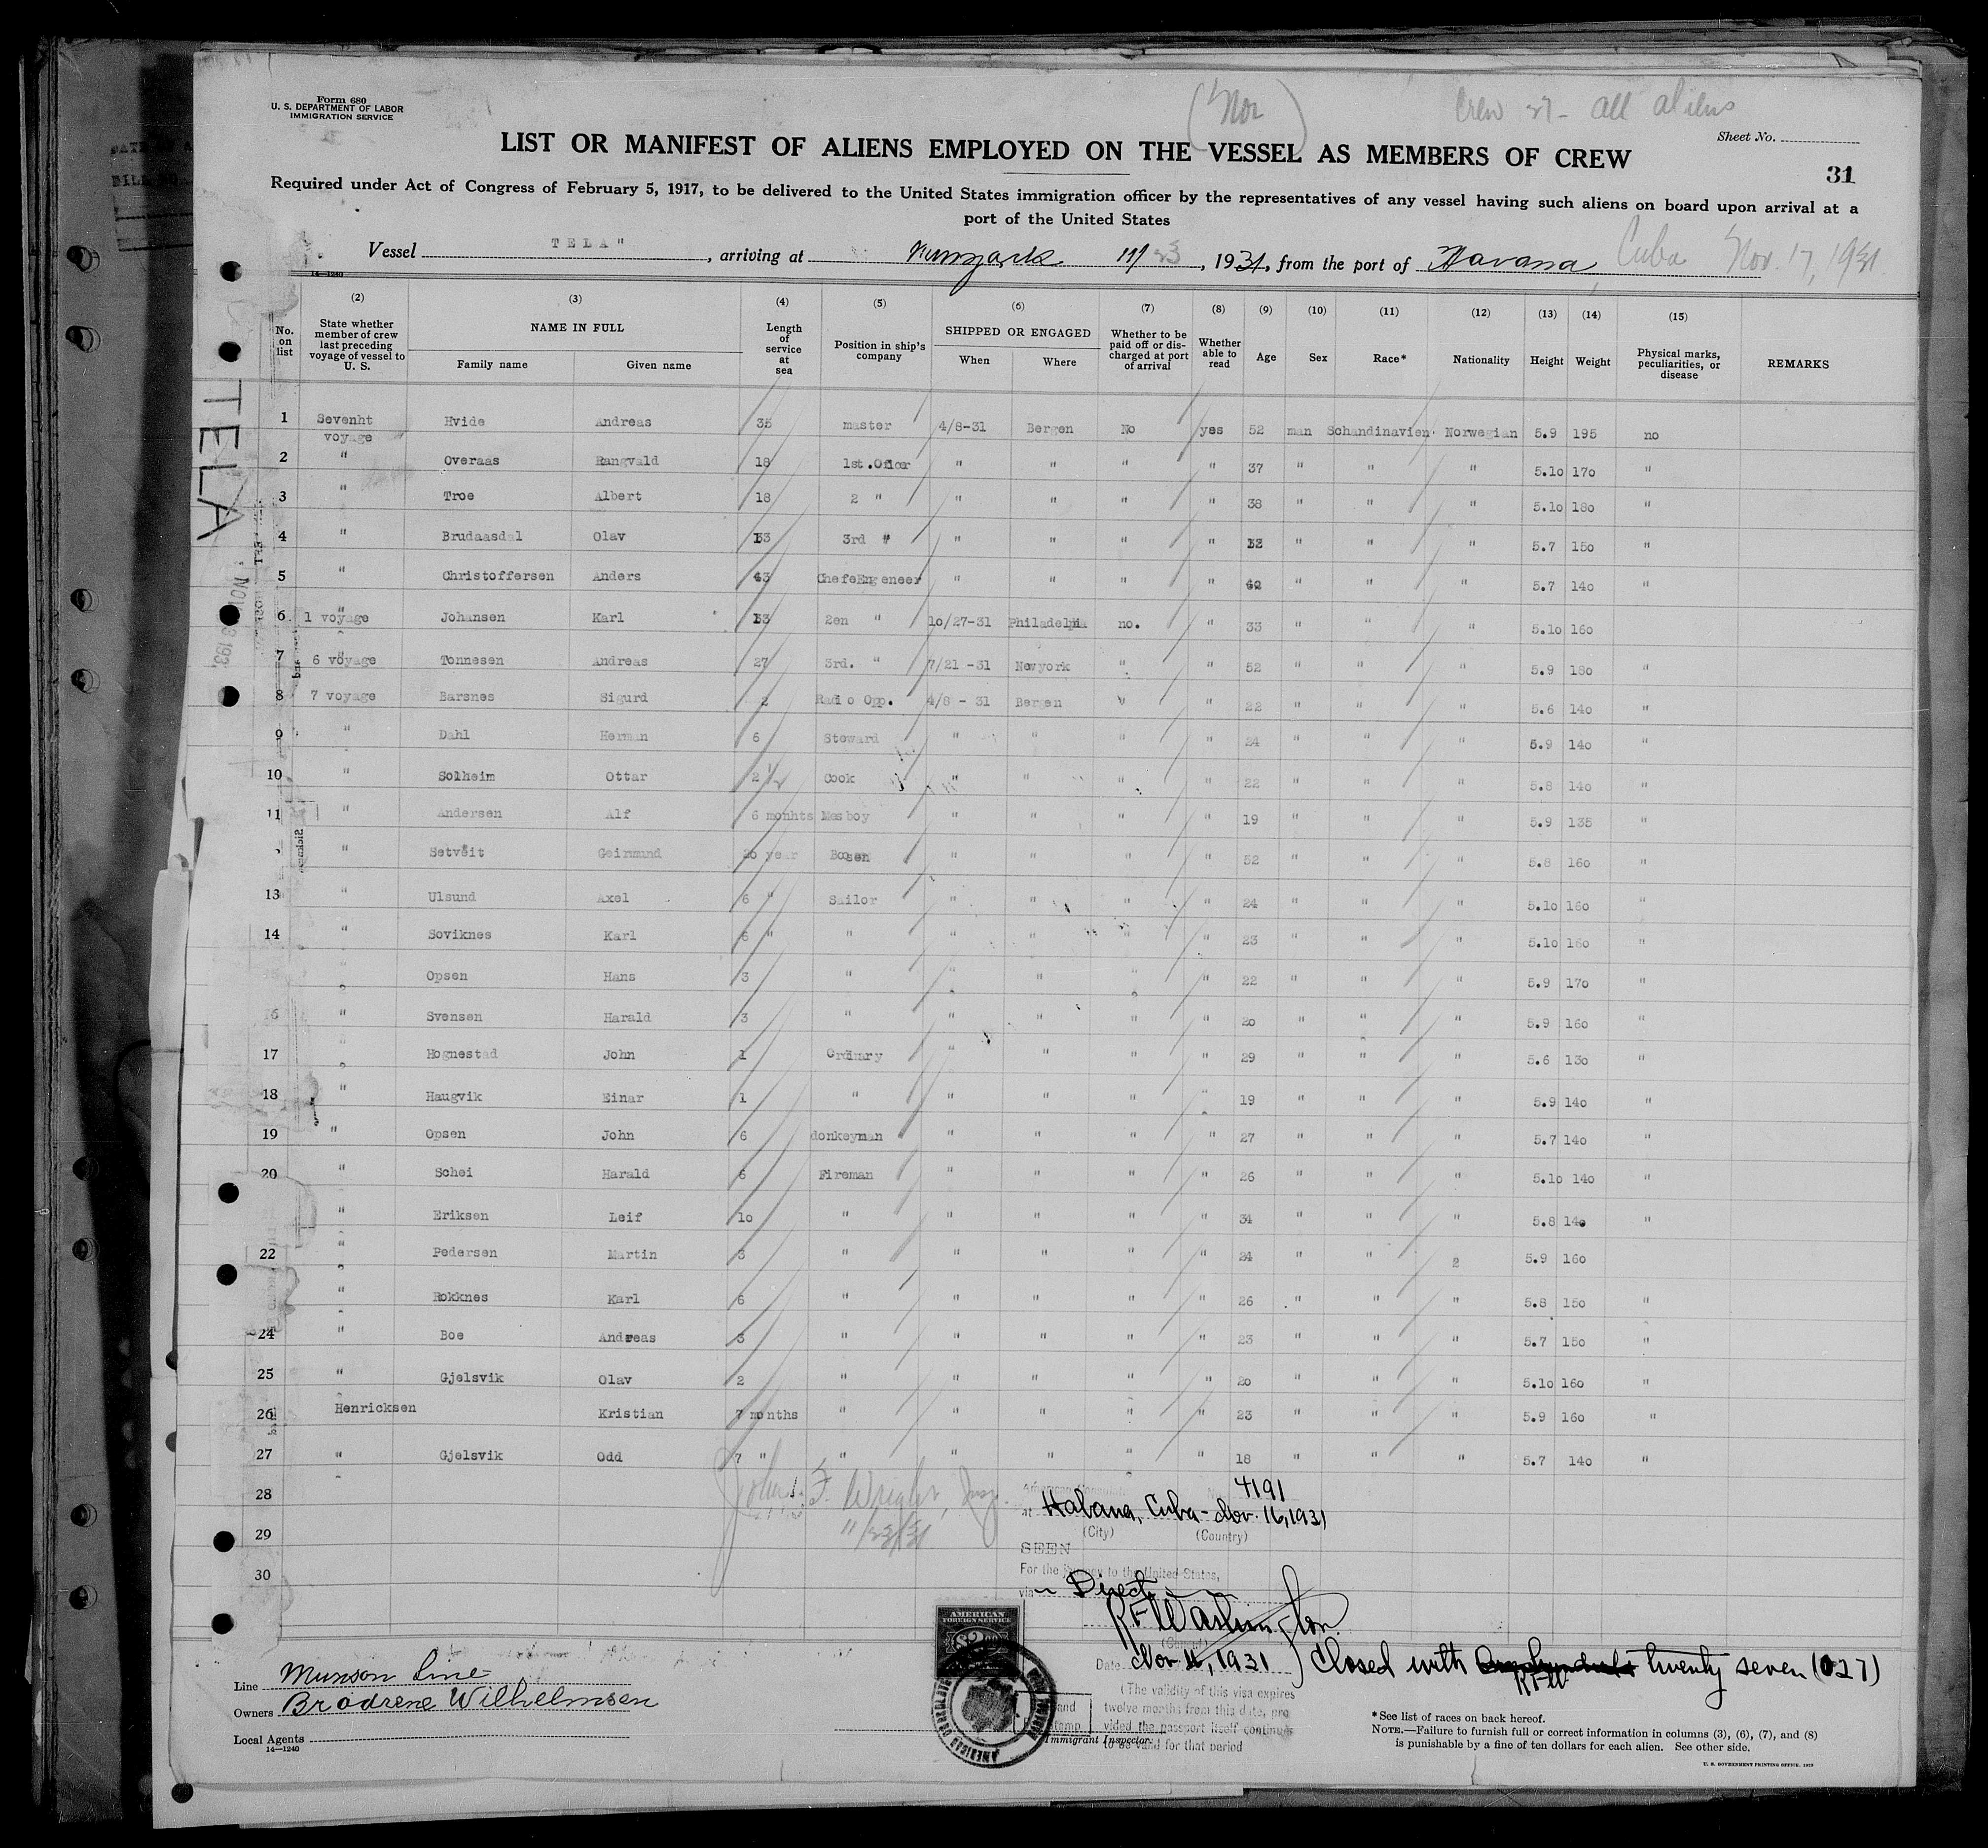 Form 680
U. S. DEPARTMENT OF LABOR
IMMIGRATION SERVICE
(Nor)
Crew 27 - all aliens
Sheet No.
LIST OR MANIFEST OF ALIENS EMPLOYED ON THE VESSEL AS MEMBERS OF CREW
31
Required under Act of Congress of February 5, 1917, to be delivered to the United States immigration officer by the representatives of any vessel having such aliens on board upon arrival at a
port of the United States
Vessel TELA", arriving at Newyork 11/23, 1931, from the port of Havana, Cuba Nov. 17, 1931
14—1240
(2) (3) (4) (5) (6) (7) (8) (9) (10) (11) (12) (13) (14) (15)
No. on list
State whether member of crew last preceding voyage of vessel to U. S.
NAME IN FULL
Family name
Given name
Length of service at sea
Position in ship's company
SHIPPED OR ENGAGED
When
Where
Whether to be paid off or discharged at port of arrival
Whether able to read
Age
Sex
Race*
Nationality
Height
Weight
Physical marks, peculiarities, or disease
REMARKS
TELA
1 Sevenht voyage Hvide Andreas 35 master 4/8-31 Bergen No yes 52 man Schandinavien Norwegian 5.9 195 no
2 " Overaas Rangvald 18 1st.Oficer " " " " 37 " " " 5.10 170 "
3 " Troe Albert 18 2 " " " " " 38 " " " 5.10 180 "
4 " Brudaasdal Olav 13 3rd " " " " " " " " 5.7 150 "
5 " Christoffersen Anders ChefeEngeneer " " " " 42 " " " 5.7 140 "
6 1 voyage Johansen Karl 13 2en " 10/27-31 Philadelphia no. " 33 " " " 5.10 160
7 6 voyage Tonnesen Andreas 27 3rd. " 7/21 -31 Newyork " " 52 " " " 5.9 180 "
8 7 voyage Barsnes Sigurd 2 Radio Opp. 4/8 - 31 Bergen " " 22 " " " 5.6 140 "
9 " Dahl Herman 6 Steward " " " " 24 " " " 5.9 140 "
10 " Solheim Ottar 2 1/2 Cook " " " " 22 " " " 5.8 140 "
11 " Andersen Alf 6 monhts Mesboy " " " " 19 " " " 5.9 135 "
" Setveit Geirmund 20 year Bosen " " " " 52 " " " 5.8 160 "
13 " Ulsund Axel 6 " Sailor " " " " 24 " " " 5.10 160 "
14 " Soviknes Karl 6 " " " " " " 23 " " " 5.10 160 "
" Opsen Hans 3 " " " " " 22 " " " 5.9 170 "
16 " Svensen Harald 3 " " " " " 20 " " " 5.9 160 "
17 " Hognestad John 1 Ordinary " " " " 29 " " " 5.6 130 "
18 " Haugvik Einar 1 " " " " " 19 " " " 5.9 140 "
19 " Opsen John 6 donkeyman " " " " 27 " " " 5.7 140 "
20 " Schei Harald 6 Fireman " " " " 26 " " " 5.10 140 "
" Eriksen Leif 10 " " " " " 34 " " " 5.8 140 "
22 " Pedersen Martin 3 " " " " " 24 " " 2 5.9 160
" Rokknes Karl 6 " " " " " 26 " " " 5.8 150 "
24 " Boe Andreas 3 " " " " " 23 " " " 5.7 150 "
25 " Gjelsvik Olav 2 " " " " " 20 " " " 5.10 160 "
26 Henricksen Kristian 7 months " " " " " 23 " " " 5.9 160 "
27 " Gjelsvik Odd 7 " " " " " " 18 " " " 5.7 140 "
28
29
30
John F. Wright, Insp.
11/23/31
4191
at Habana, Cuba - Nov. 16, 1931
(City) (Country)
SEEN
For the journey to the United States,
via Direct
R F Washington
(Consul)
Date Nov 16, 1931) Closed with twenty seven (027)
RFW
(The validity of this visa expires
twelve months from this date, pro
vided the passport itself continues
to be valid for that period
AMERICAN
FOREIGN SERVICE
$2.00
Line Munson Line
Owners Brodrene Wilhelmsen
Local Agents
14—1240
Immigrant Inspector.
*See list of races on back hereof.
NOTE.—Failure to furnish full or correct information in columns (3), (6), (7), and (8)
is punishable by a fine of ten dollars for each alien. See other side.
U. S. GOVERNMENT PRINTING OFFICE, 1929